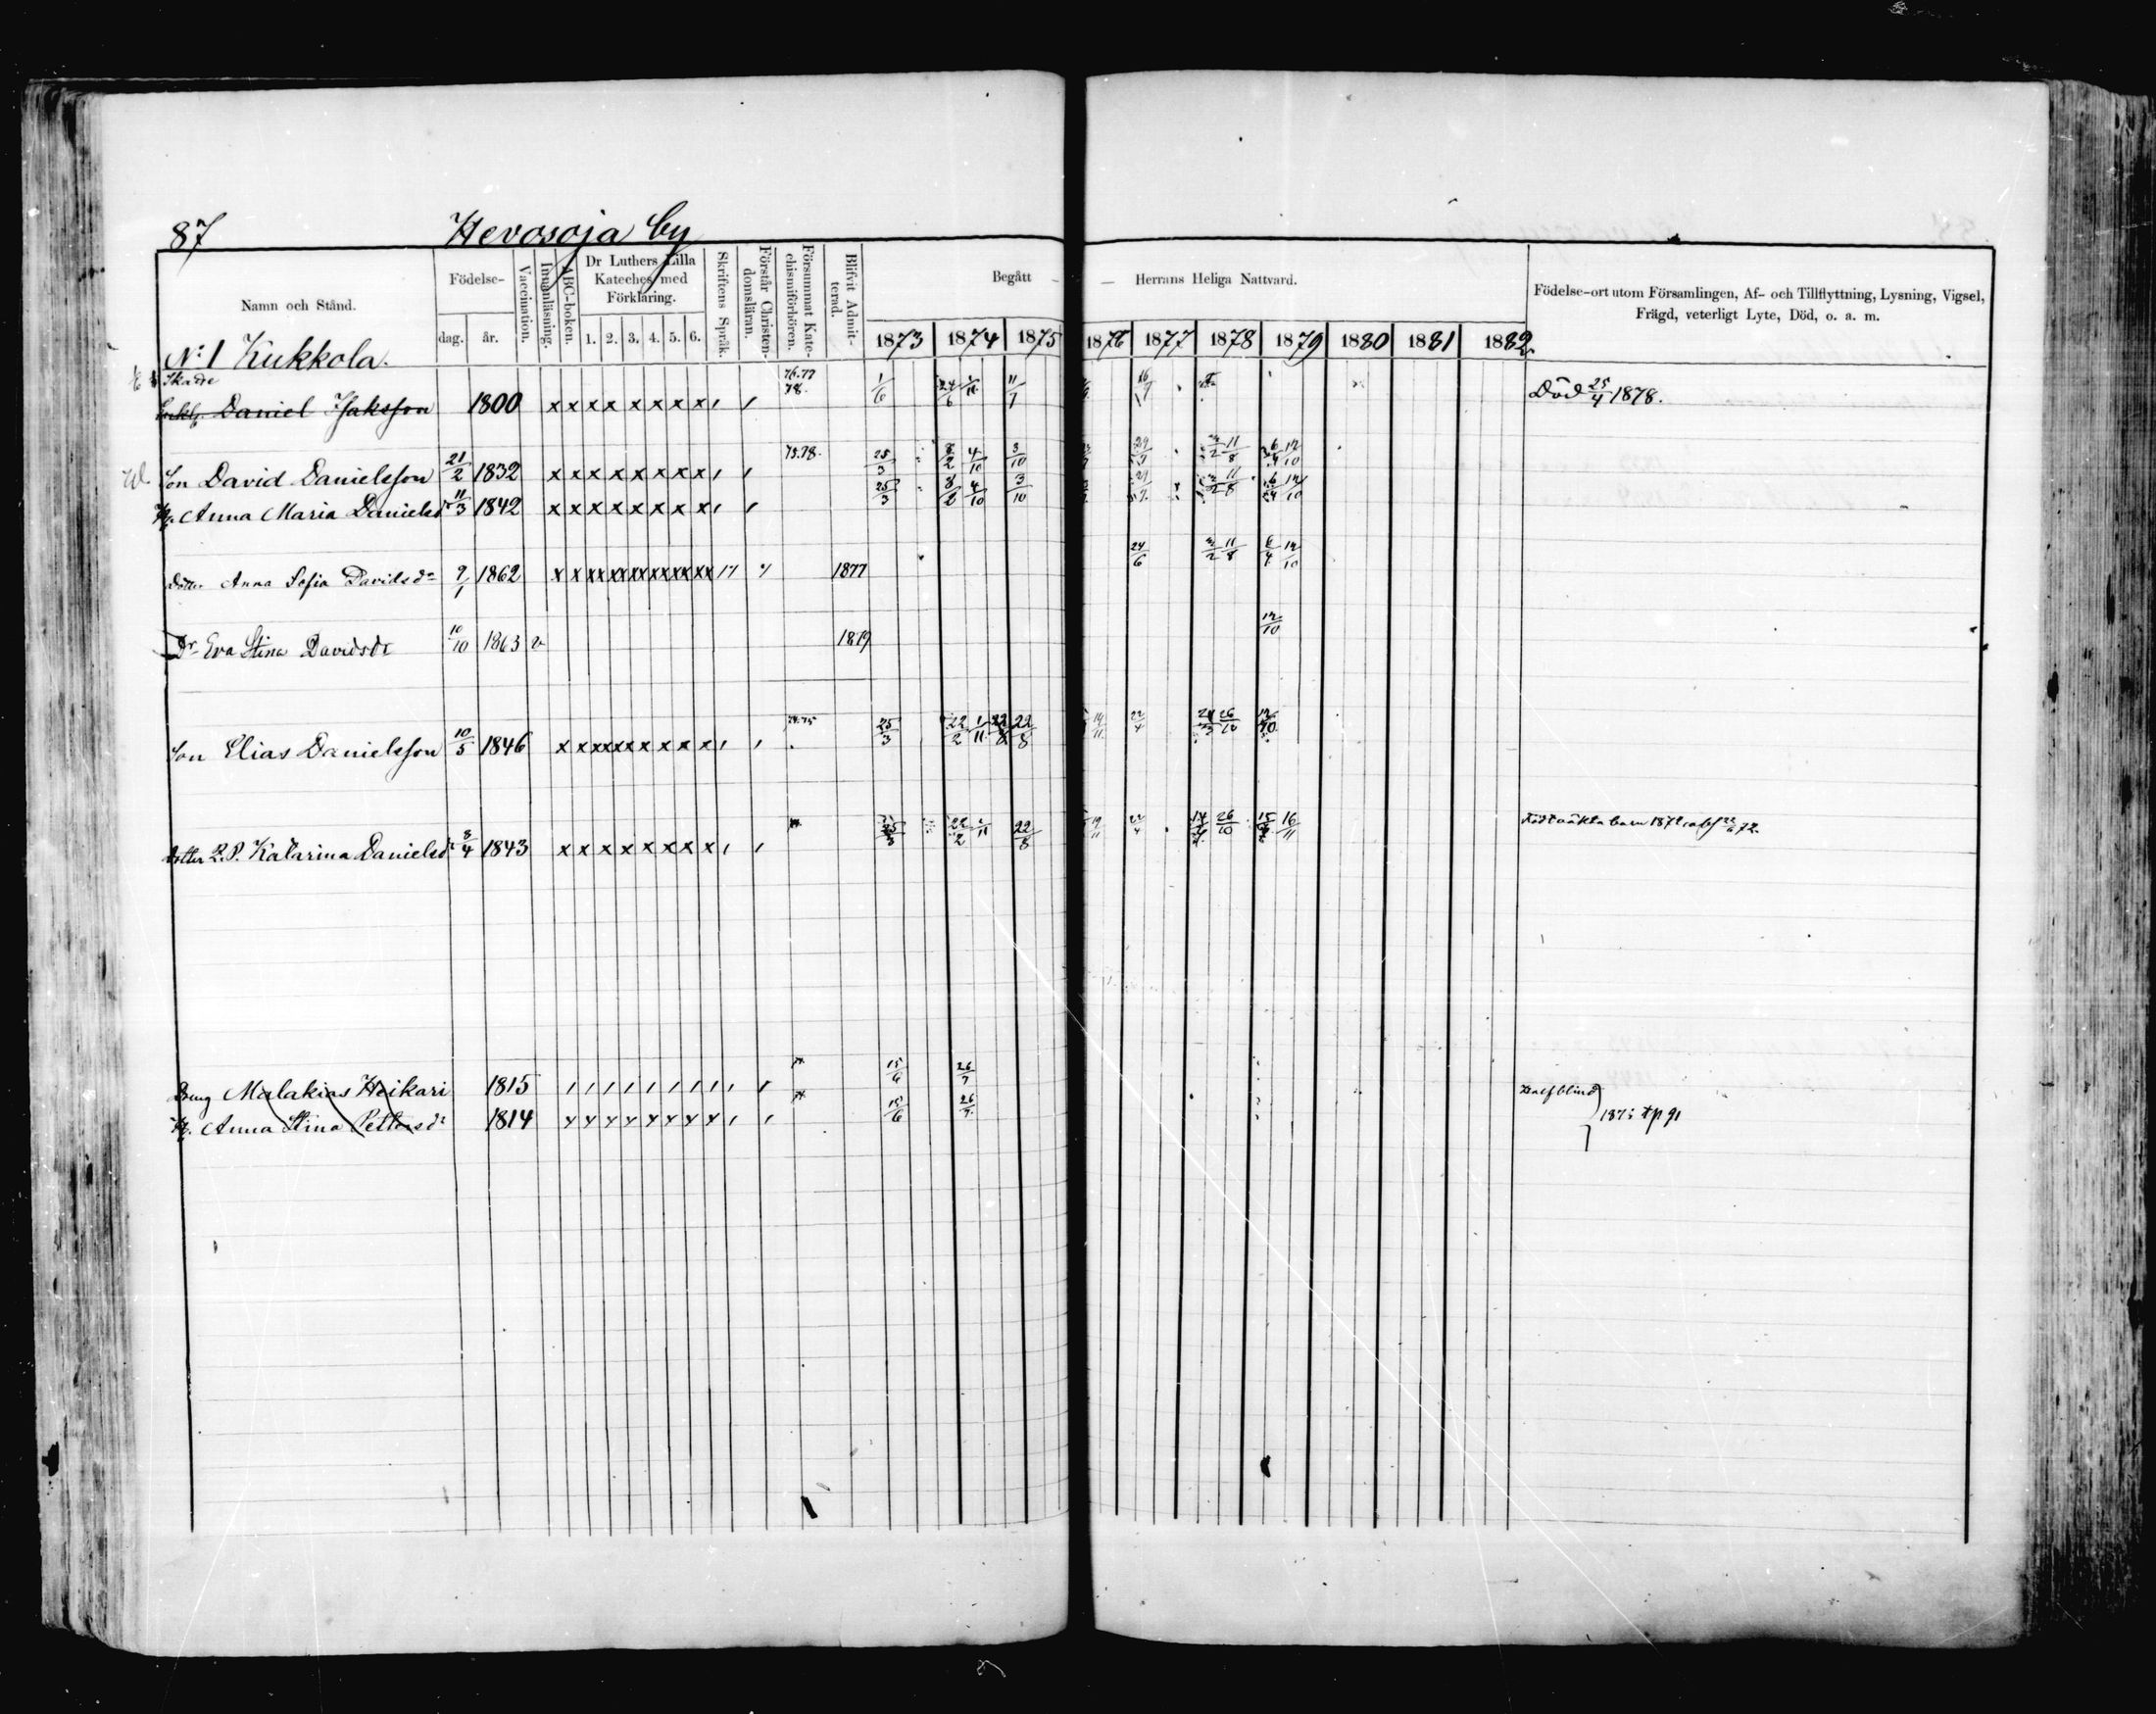 87 Hevosoja by
Namn och Stånd.
Födelse-
dag. år.
Vaccination.
Innanläsning.
ABC-boken.
Dr Luthers Lilla
Kateches med
Förklaring.
1. 2. 3. 4. 5. 6.
Skriftens Språk.
Förstår Christen-
domsläran.
Försummat Kate-
chismiförhören.
Blifvit Admit-
terad.
Begått — — Herrans Heliga Nattvard.
1873 1874 1875 1876 1877 1878 1879 1880 1881 1882
Födelse-ort utom Församlingen, Af- och Tillflyttning, Lysning, Vigsel,
Frägd, veterligt Lyte, Död, o. a. m.
N:1 Kukkola.
Daniel Isaksson 1800 x x x x x x x x / / 76.77 78. 1/6 11/7 Död 25/4 1878.
Son David Danielsson 21/2 1832 x x x x x x x x / / 75.78. 25/3 8/2 4/10 3/10 29/9 11/8 6/4 12/10
H. Anna Maria Danielsdr 11/3 1842 x x x x x x x x / / 25/3 8/2 4/10 3/10 11/8 6/4 12/10
Dotter Anna Sofia Davidsdr 9/1 1862 x x xx xx xx xx xx xx 1877 24/6 11/8 6/4 12/10
Dr Eva Stina Davidsdr 10/10 1863 v 1879 12/10
Son Elias Danielsson 10/5 1846 x x xx xx x x x x / / 74.75 25/3 22/2 1/11 22/8 22/4 26/10
Dotter L.P. Katarina Danielsdr 8/4 1843 x x x x x x x x / / 25/3 22/2 1/11 22/8 19/11 22/4 26/10 16/11 Född oäkta barn 1872 abs 22/6 72.
Dräng Malakias Heikari 1815 / / / / / / / / / / 15/6 26/7 Halfblind
H. Anna Stina Pettersdr 1814 / / 15/6 26/7 tp 91